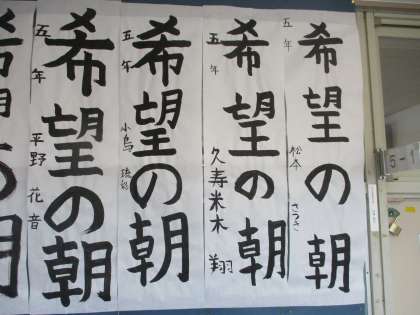 希望の朝
五年
松本 さつき
希望の朝
五年
久寿米木 翔
希望の朝
五年
小鳥
希望の朝
五年
平野 花音
希望の朝
5